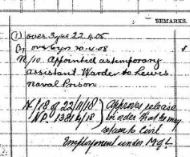 REMARKS.
(1) over 3yrs 22.4.05
over 6yrs 10.4.08
N/10. Appointed as temporary
assistant Warder to Lewes
Naval Prison
N/18 of 22/11/18 } Approves release
N.P. 1381/18 } in order that he may
return to Civil
Employment under M of L